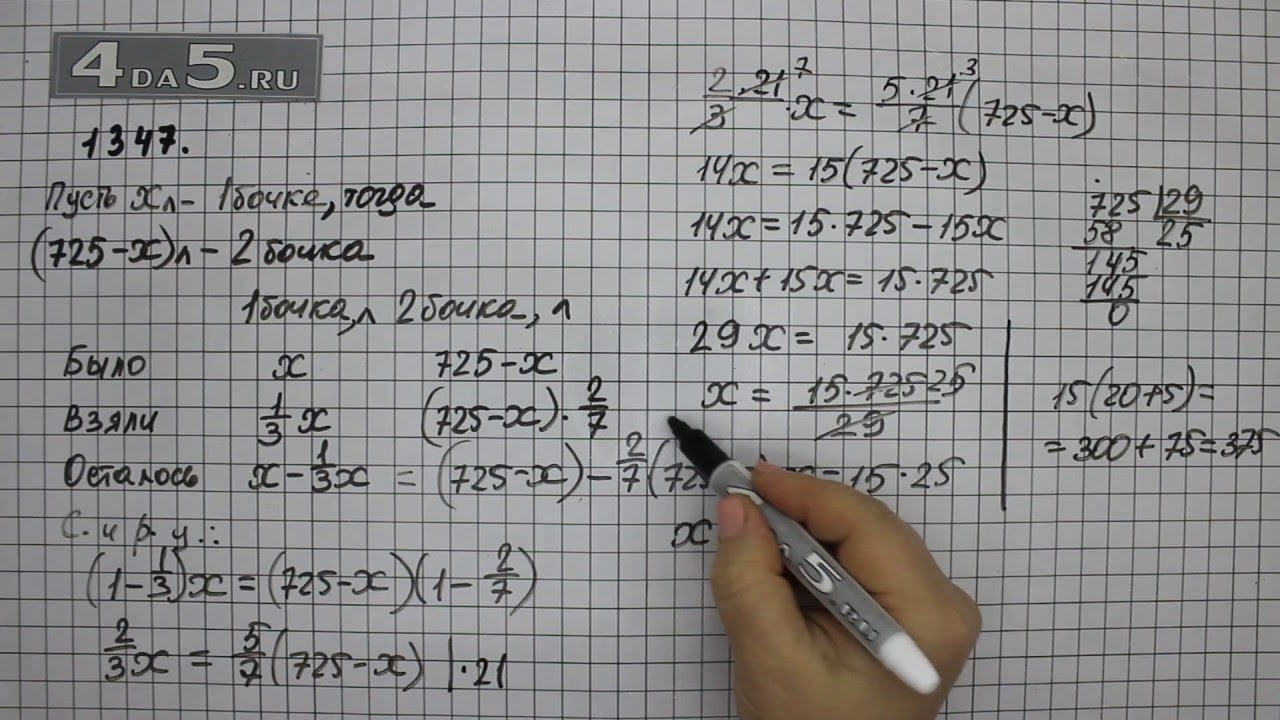 4DA5.RU
1347.
Пусть х л - 1 бочка, тогда
(725-х) л - 2 бочка
1 бочка, л 2 бочка, л
Было х 725-х
Взяли 1/3 х (725-х)·2/7
Осталось х-1/3х = (725-х)-2/7(725
С. и р. у.:
(1-1/3)х=(725-х)(1-2/7)
2/3х = 5/7(725-х) |·21
2·21⁷/3·х = 5·21³/7(725-х)
14х=15(725-х)
14х=15·725-15х
14х+15х=15·725
29х= 15·725
х = 15·725 25/29
=15·25
х
725 |29
58 25
145
145
0
15(20+5)=
=300+75=375
5.RU